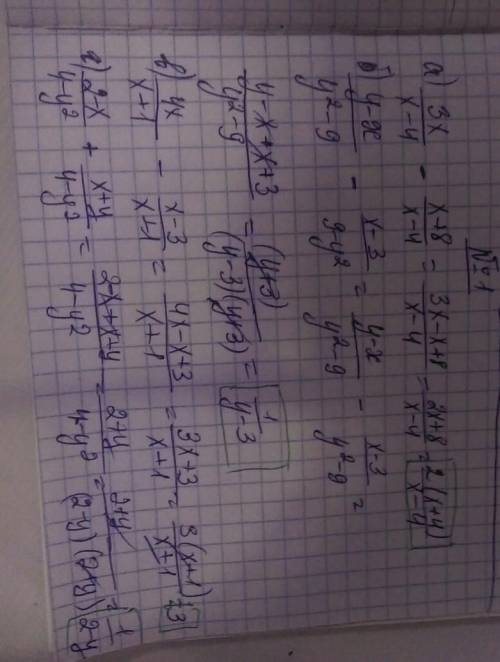 №1
а) 3x/(x-4) - (x+8)/(x-4) = (3x-x+8)/(x-4) = (2x+8)/(x-4) = 2(x+4)/(x-4)
б) (y-x)/(y²-9) - (x-3)/(9-y²) = (y-x)/(y²-9) - (x-3)/(y²-9) =
(y-x+x+3)/(y²-9) = (y+3)/((y-3)(y+3)) = 1/(y-3)
в) 4x/(x+1) - (x-3)/(x+1) = (4x-x+3)/(x+1) = (3x+3)/(x+1) = 3(x+1)/(x+1) = 3
г) (2-x)/(4-y²) + (x+y)/(4-y²) = (2-x+x-y)/(4-y²) = (2+y)/(4-y²) = (2+y)/((2-y)(2+y)) = 1/(2-y)